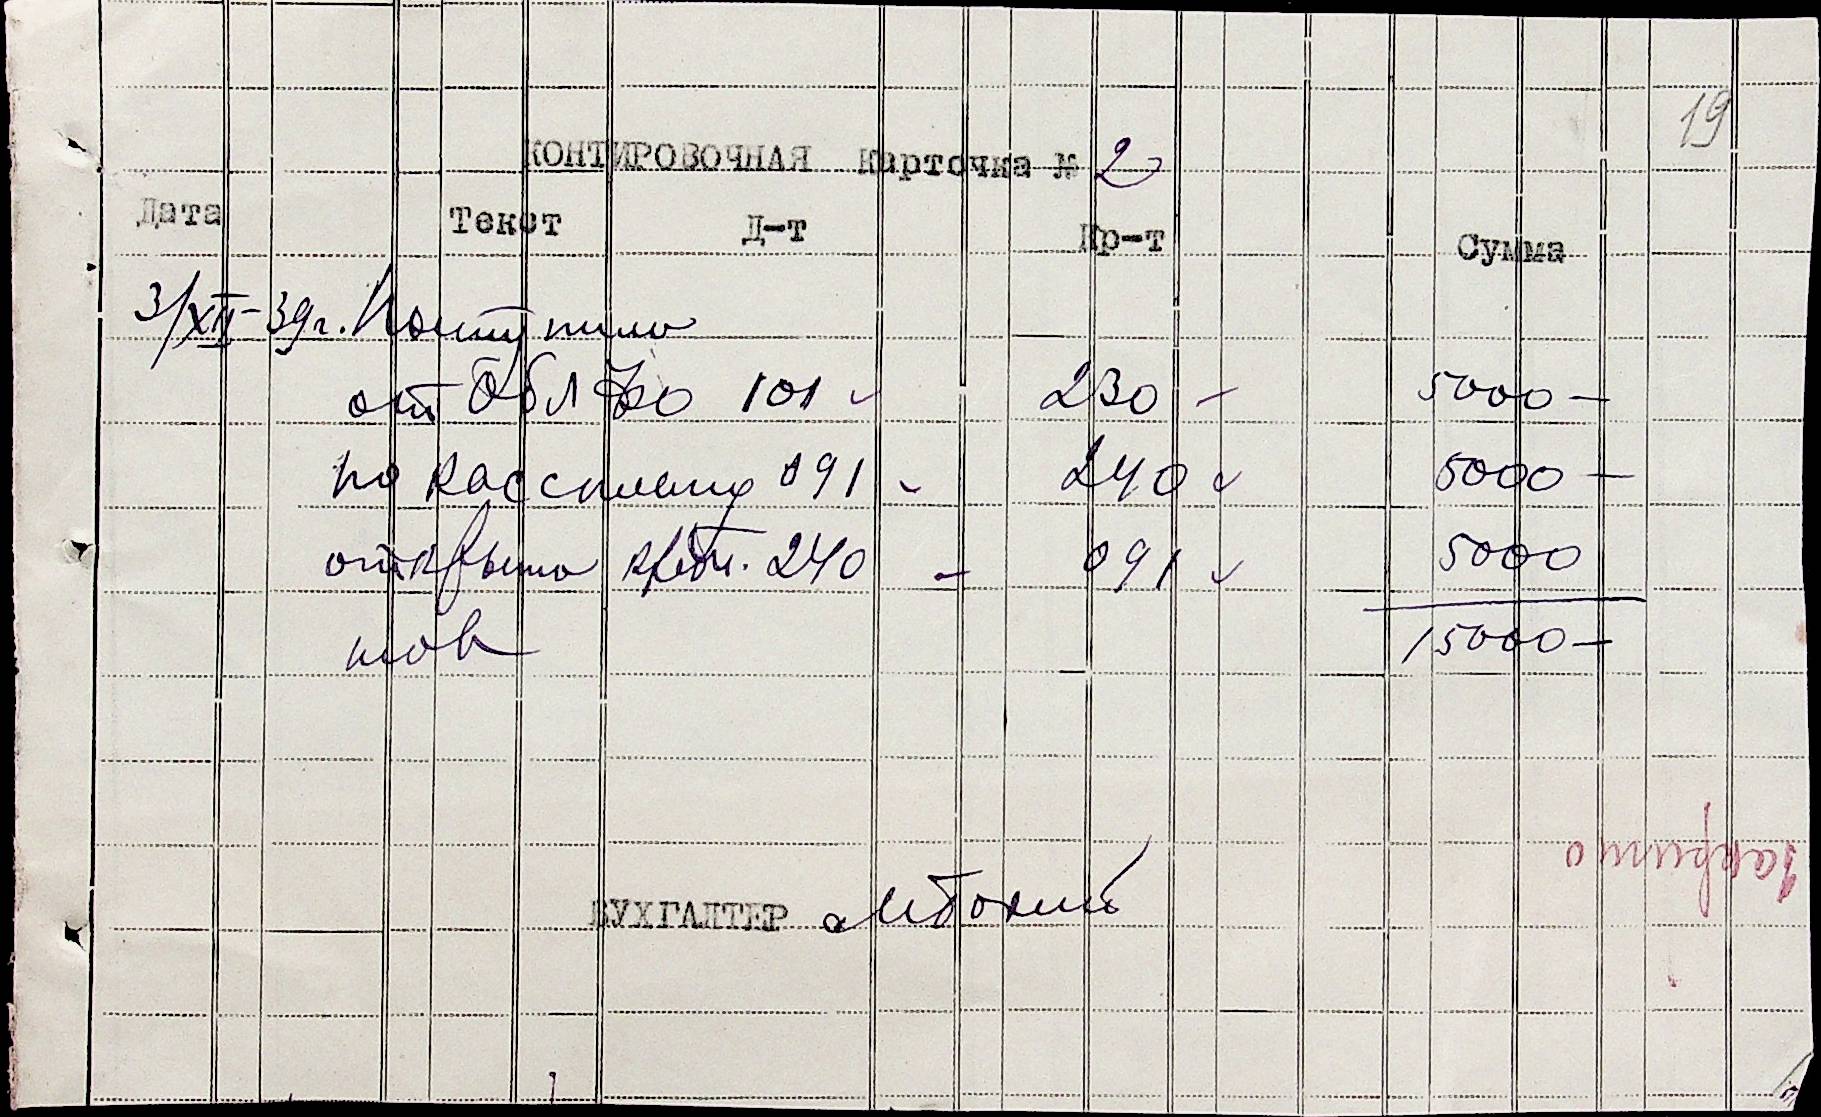 19
КОНТИРОВОЧНАЯ Карточка № 2
Дата Текст Д-т Кр-т Сумма
3/XII-39г. Поступило
от ОблЗО 101 230 - 5000 -
по рассылке 091 240 5000 -
открыто 240 - 091 5000
15000 -
БУХГАЛТЕР
закрито